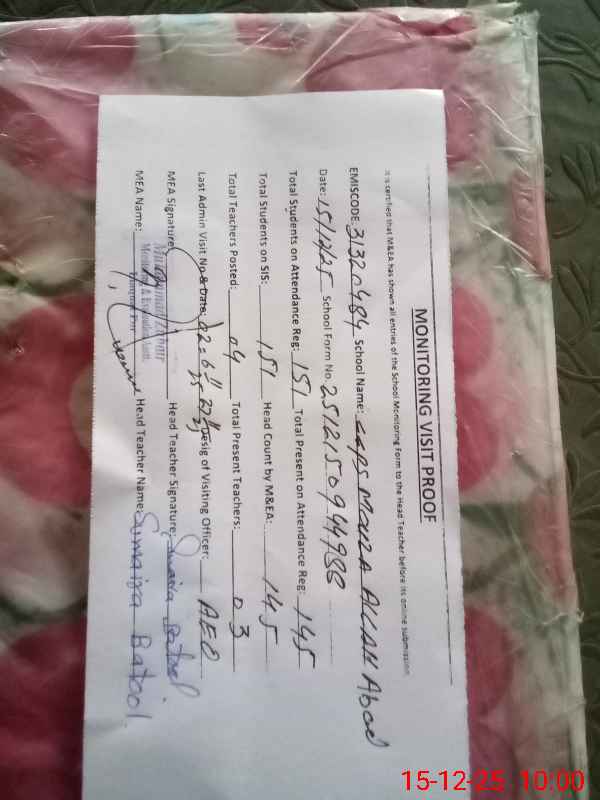 MONITORING VISIT PROOF
It is certified that M&EA has shown all entries of the School Monitoring Form to the Head Teacher before its online submission
EMISCODE: 31320484 School Name: GGPS MOUZA ALLAH Abad
Date: 15/12/25 School Form No. 251215094498
Total Students on Attendance Reg: 151 Total Present on Attendance Reg: 145
Total Students on SIS: 151 Head Count by M&EA: 145
Total Teachers Posted: 04 Total Present Teachers: 03
Last Admin Visit No & Date: Desig of Visiting Officer: AEO
MEA Signature: Head Teacher Signature: Sumaira Batool
MEA Name: Head Teacher Name: Sumaira Batool
15-12-25 10:00